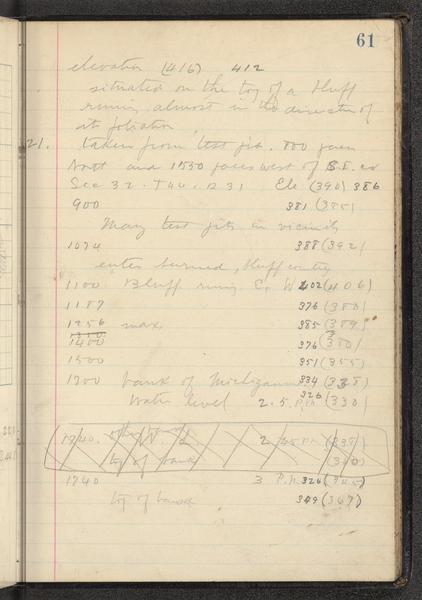 61
elevation (416) 412
situated on the top of a bluff
runing almost in the direction of
its foliation
21. taken from test pit. 700 paces
North and 1550 paces west of S.E. cor
Sec 32. T 40. R 31 Ele (390) 386
900 381 (385)
Many test pits in vicinity
1074 388 (392)
enter burned, bluff country
1100 Bluff runing E. W 402 (406)
1187 376 (380)
1256 max. 385 (389)
1400 376 (380)
1500 351 (355)
1700 bank of Michigamme 334 (338)
Water level 2.5 P.M. 326 (330)
1740. 2
top of bank
1740 3 P.M. 326 (345)
top of bank 349 (367)